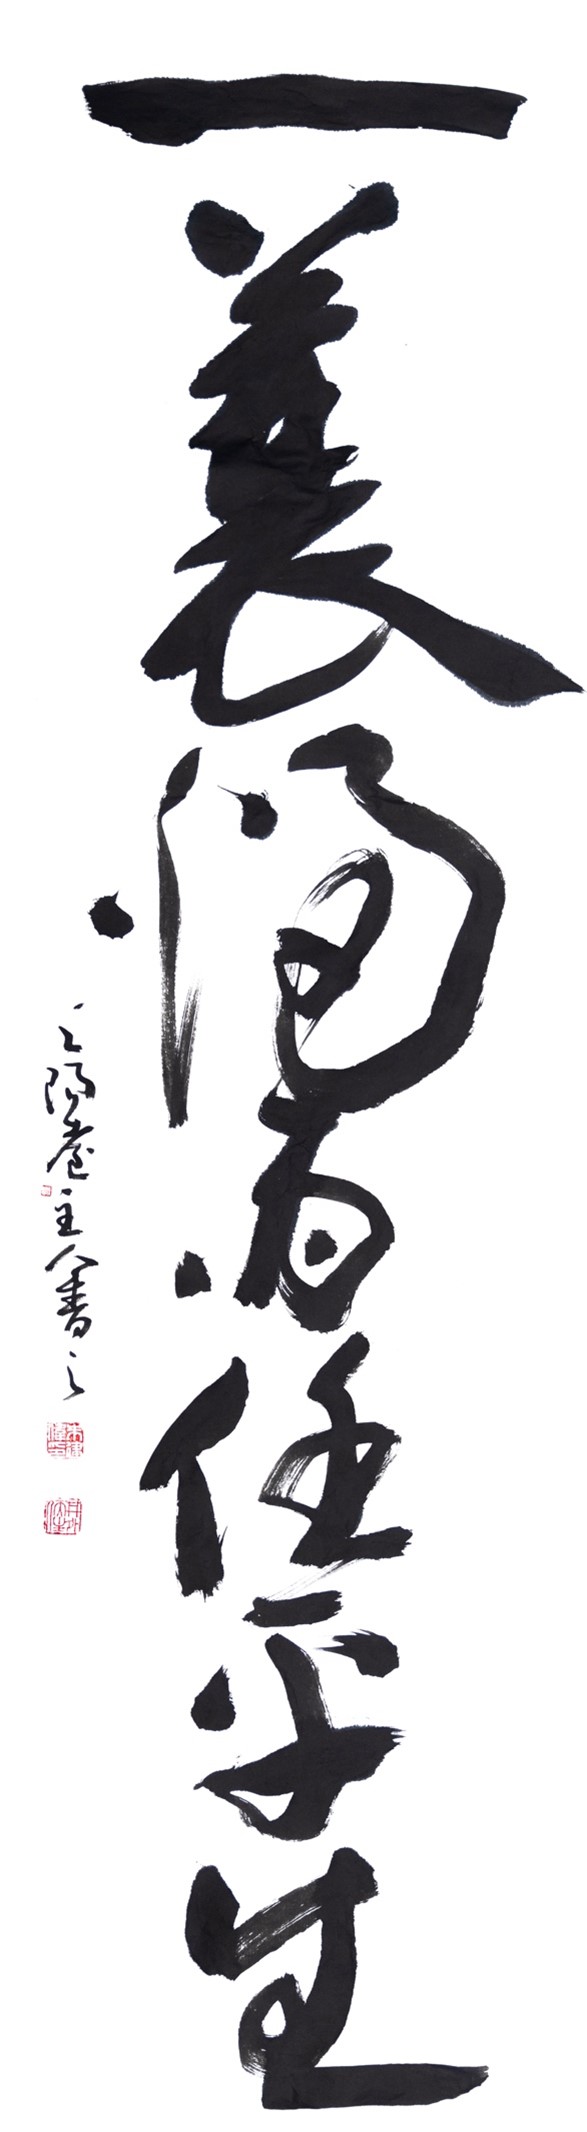 一蓑烟雨任平生
堂主人書之